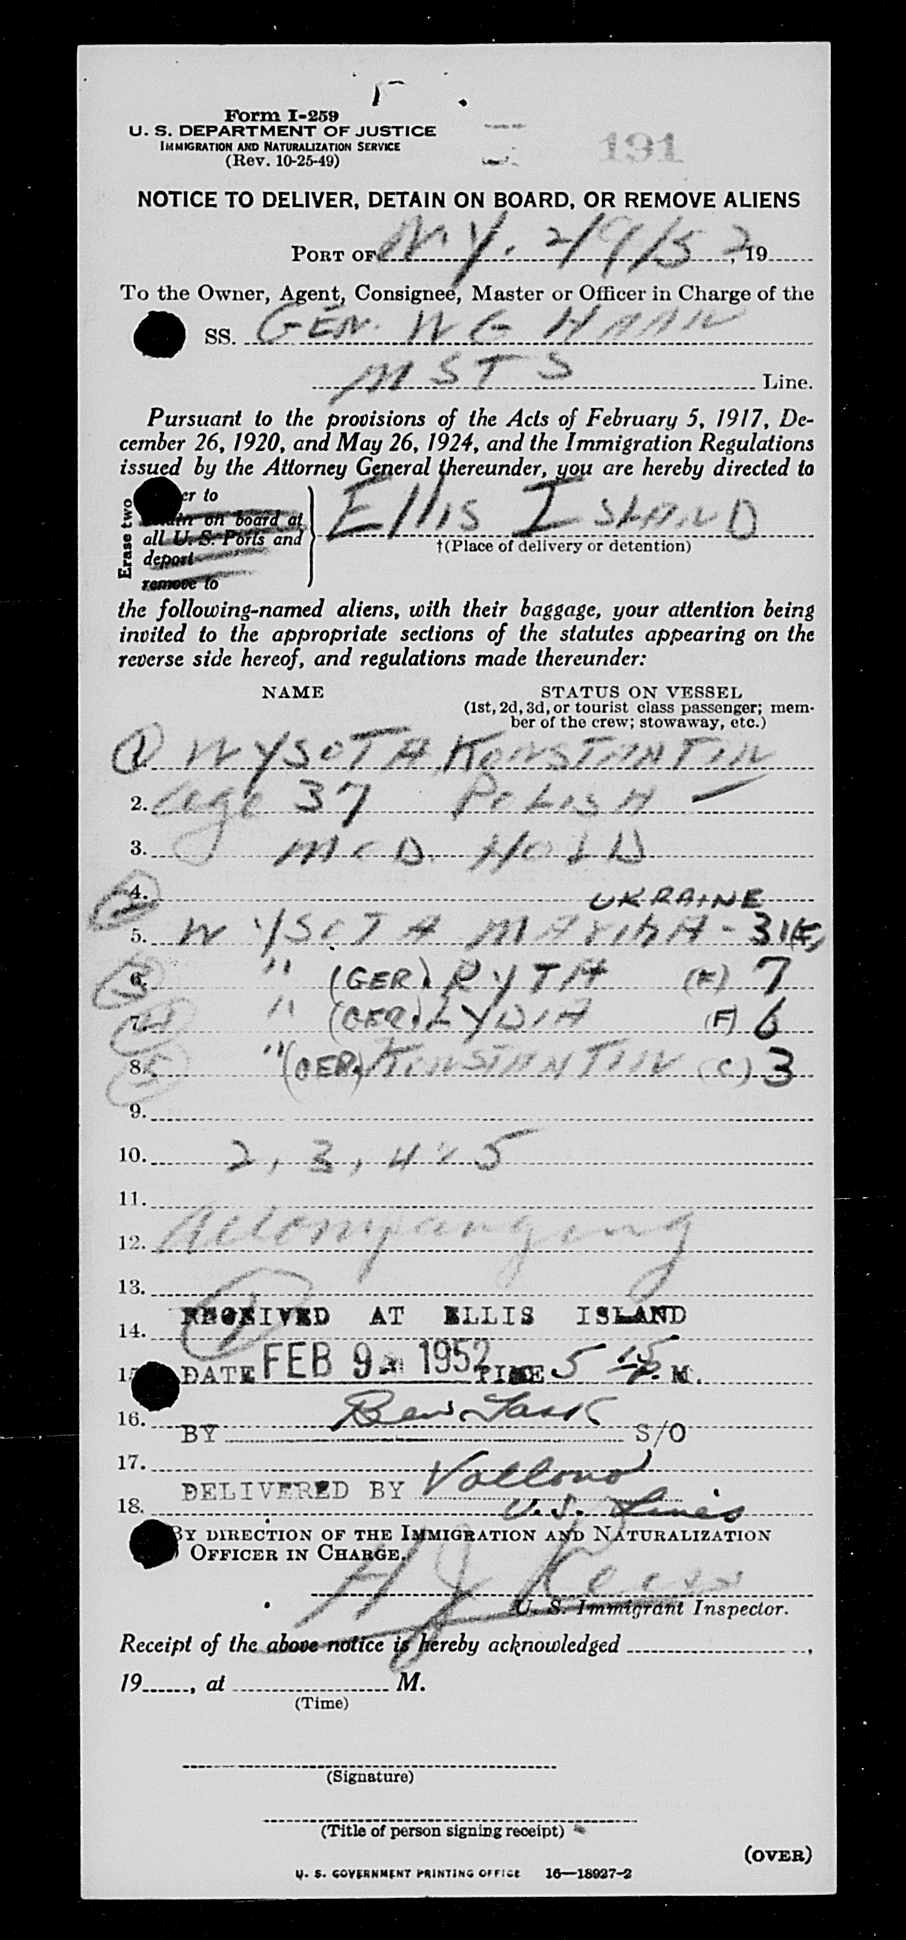 Form I-259
U. S. DEPARTMENT OF JUSTICE
IMMIGRATION AND NATURALIZATION SERVICE
(Rev. 10-25-49)
191
NOTICE TO DELIVER, DETAIN ON BOARD, OR REMOVE ALIENS
PORT OF N.Y. 2/9/52, 19
To the Owner, Agent, Consignee, Master or Officer in Charge of the
SS. GEN. W G HAAN
MSTS Line.
Pursuant to the provisions of the Acts of February 5, 1917, De-
cember 26, 1920, and May 26, 1924, and the Immigration Regulations
issued by the Attorney General thereunder, you are hereby directed to
Erase two
er to
on board at
all U. S. Ports and
deport
remove to
ELLIS ISLAND
†(Place of delivery or detention)
the following-named aliens, with their baggage, your attention being
invited to the appropriate sections of the statutes appearing on the
reverse side hereof, and regulations made thereunder:
NAME STATUS ON VESSEL
(1st, 2d, 3d, or tourist class passenger; mem-
ber of the crew; stowaway, etc.)
1 WYSOTA KONSTANTIN
2. age 37 POLISH —
3. MCD. HOLD
4. UKRAINE
5. WYSOTA - 31
6. 3 " (GER). RYTA 7
7. 4 " (GER.) LYDIA (F) 6
8. 5 " (GER.) KONSTANTIN 3
9.
10. 2, 3, 4 & 5
11.
12. Accompanying
13. 1
RECEIVED AT ELLIS ISLAND
14.
15 DATE FEB 9 1952 TIME 5 15 P. M.
16.
BY Ben S/O
17.
DELIVERED BY
18. U.S. Lines
BY DIRECTION OF THE IMMIGRATION AND NATURALIZATION
OFFICER IN CHARGE.
H J
U. S. Immigrant Inspector.
Receipt of the above notice is hereby acknowledged ,
19 , at M.
(Time)
(Signature)
(Title of person signing receipt)
(OVER)
U. S. GOVERNMENT PRINTING OFFICE 16—18927-2